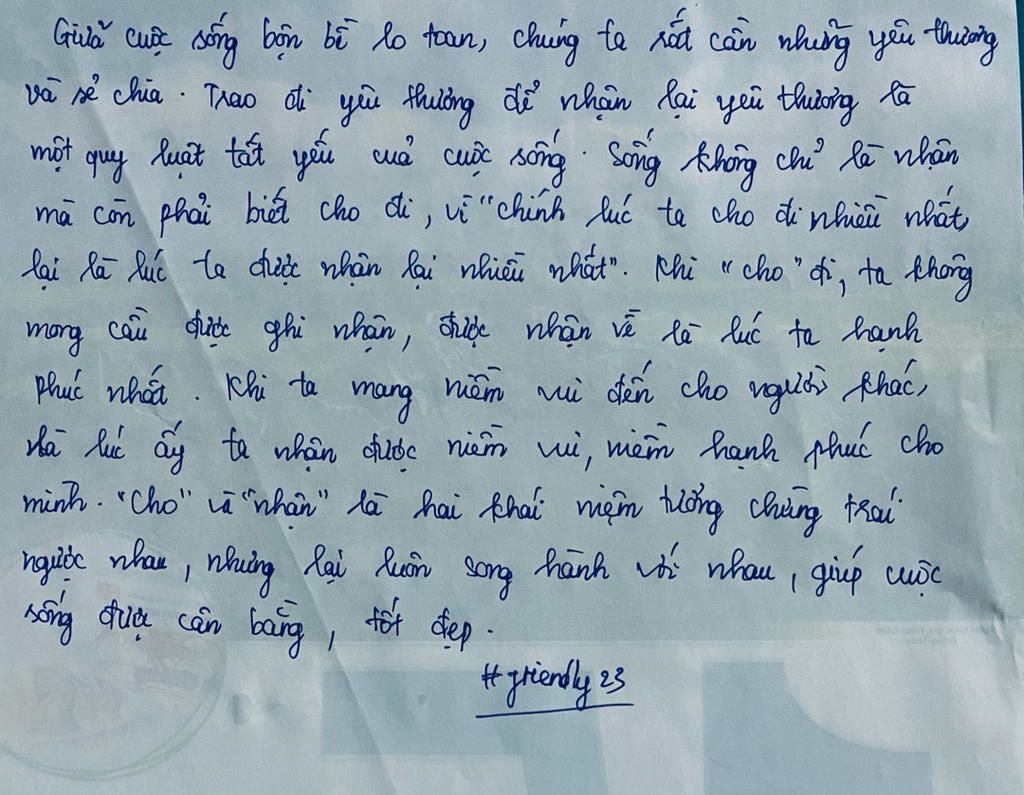 Giữa cuộc sống bộn bề lo toan, chúng ta rất cần những yêu thương
và sẻ chia. Trao đi yêu thương để nhận lại yêu thương là
một quy luật tất yếu của cuộc sống. Sống không chỉ là nhận
mà còn phải biết cho đi, vì "chính lúc ta cho đi nhiều nhất,
lại là lúc ta được nhận lại nhiều nhất". Khi "cho" đi, ta không
mong cầu được ghi nhận, được nhận về là lúc ta hạnh
phúc nhất. Khi ta mang niềm vui đến cho người khác,
là lúc ấy ta nhận được niềm vui, niềm hạnh phúc cho
mình. "Cho" và "nhận" là hai khái niệm tưởng chừng trái
ngược nhau, nhưng lại luôn song hành với nhau, giúp cuộc
sống được cân bằng, tốt đẹp.
#friendly23